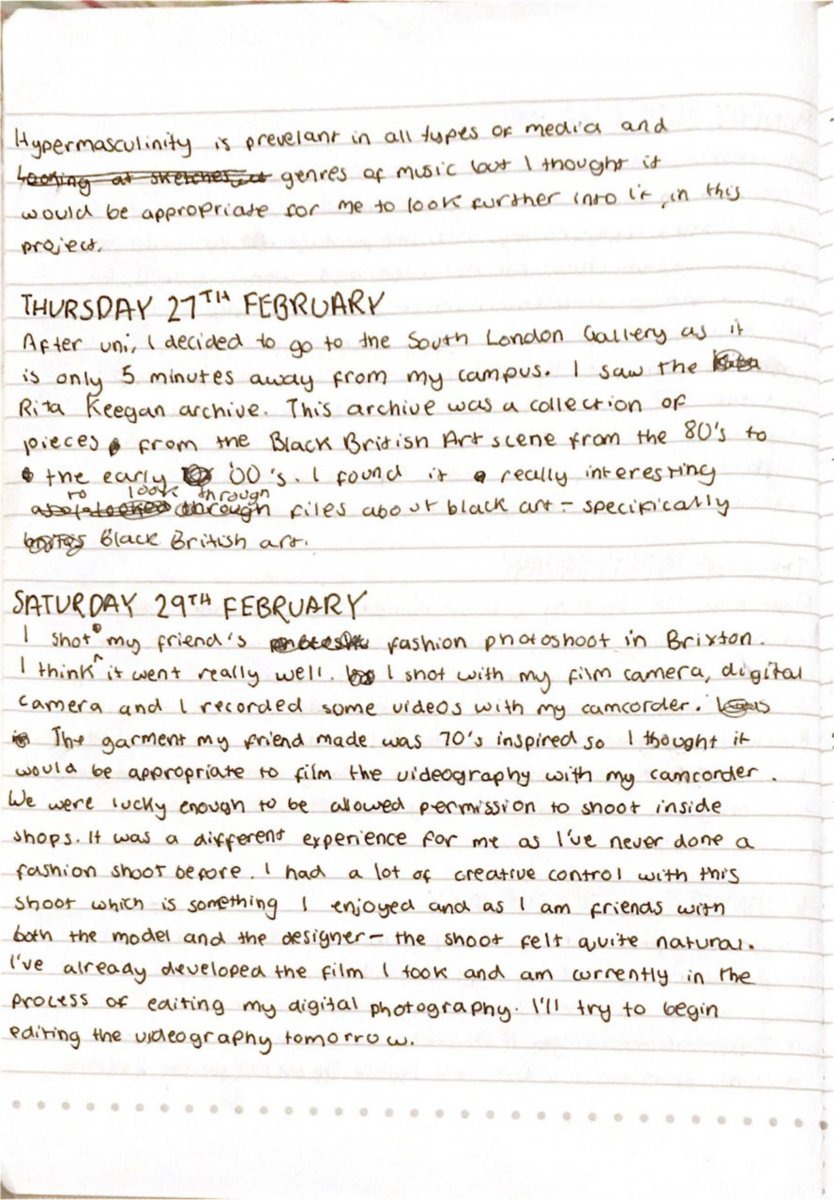 Hypermasculinity is prevelant in all types of media and
Looking at sketches genres of music but I thought it
would be appropriate for me to look further into it, in this
project.
THURSDAY 27TH FEBRUARY
After uni, I decided to go to the South London Gallery as it
is only 5 minutes away from my campus. I saw the
Rita Keegan archive. This archive was a collection of
pieces from the Black British Art scene from the 80's to
the early 00's. I found it really interesting
to look through
through files about black art - specifically
Black British art.
SATURDAY 29TH FEBRUARY
I shot my friend's fashion photoshoot in Brixton.
I think it went really well. I shot with my film camera, digital
camera and I recorded some videos with my camcorder.
The garment my friend made was 70's inspired so I thought it
would be appropriate to film the videography with my camcorder.
We were lucky enough to be allowed permission to shoot inside
shops. It was a different experience for me as I've never done a
fashion shoot before. I had a lot of creative control with this
shoot which is something I enjoyed and as I am friends with
both the model and the designer - the shoot felt quite natural.
I've already developed the film I took and am currently in the
process of editing my digital photography. I'll try to begin
editing the videography tomorrow.